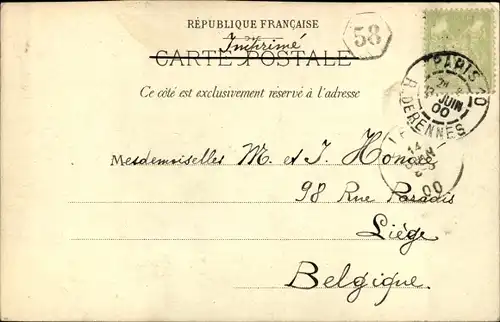 RÉPUBLIQUE FRANÇAISE
Imprimé
58
CARTE POSTALE
Ce côté est exclusivement réservé à l'adresse
PARIS
JUIN
00
R. DERENNES
Mesdemoiselles M. et J.
14
00
98 Rue Paradis
Liége
Belgique.